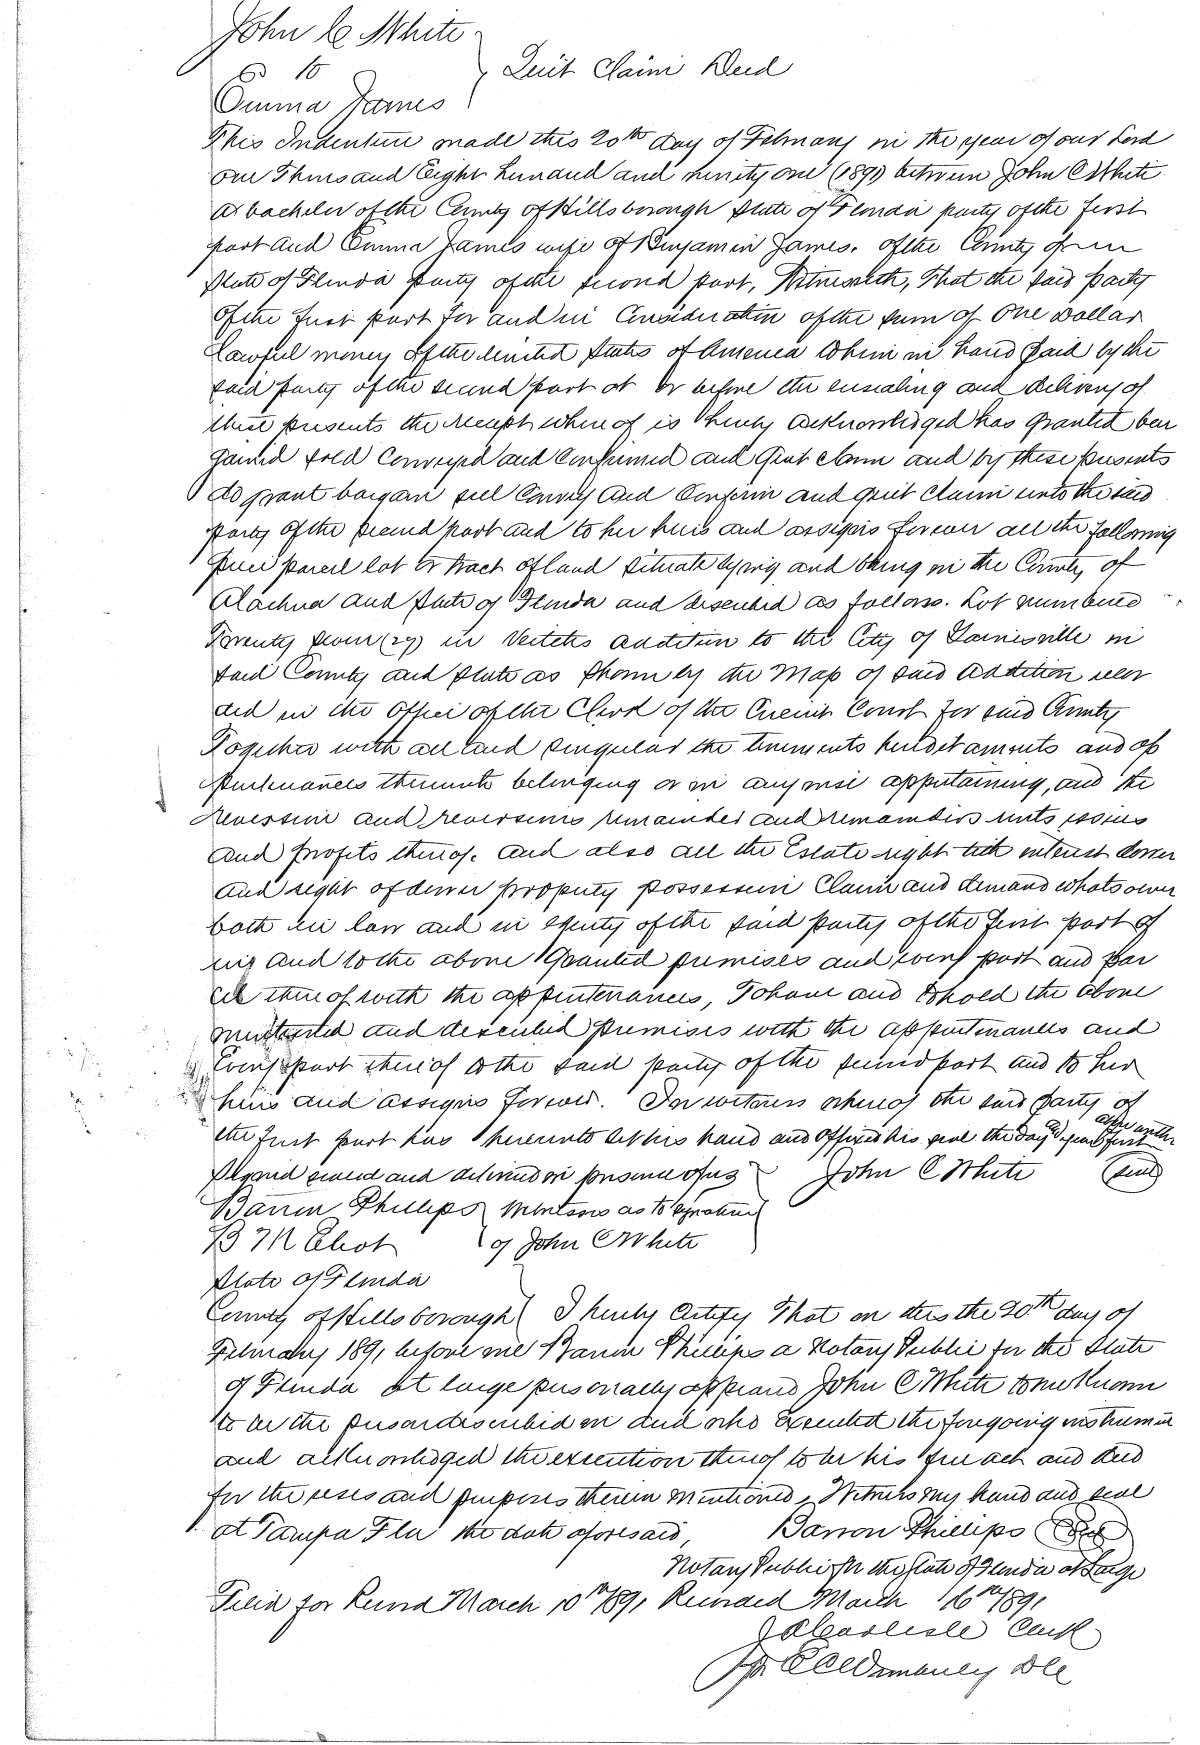 John C White
to
Quit Claim Deed
Emma James
This Indenture made this 20th day of February in the year of our Lord
One Thousand Eight Hundred and ninety one (1891) between John C White
a bachelor of the County of Hillsborough State of Florida party of the first
part and Emma James wife of Benjamin James. of the County of
State of Florida party of the second part, Witnesseth, That the said party
of the first part for and in Consideration of the sum of One Dollar
lawful money of the United States of America to him in hand paid by the
said party of the second part at or before the ensealing and delivery of
these presents the receipt whereof is hereby acknowledged has granted bar
gained sold Conveyed and Confirmed and Quit claim and by these presents
do grant bargain sell Convey and Confirm and quit claim unto the said
party of the second part and to her heirs and assigns forever all the following
piece parcel lot or tract of land situate lying and being in the County of
Alachua and State of Florida and described as follows. Lot numbered
Twenty seven (27) in addition to the City of Gainesville in
said County and State as shown by the Map of said addition recor
ded in the Office of the Clerk of the Circuit Court for said County
Together with all and singular the tenements hereditaments and ap
purtenances thereunto belonging or in anywise appertaining, and the
reversion and reversions remainder and remainders rents issues
and profits thereof. And also all the Estate right title interest dower
and right of dower property possession Claim and demand whatsoever
both in law and in equity of the said party of the first part of
in and to the above Granted premises and every part and par
cel thereof with the appurtenances, To have and to hold the above
mentioned and described premises with the appurtenances and
Every part thereof to the said party of the second part and to her
heirs and assigns forever. In witness whereof the said party of
the first part has hereunto set his hand and affixed his seal the day & year first above writt
Signed sealed and delivered in presence of us John C White (seal)
Barron Phillips witnesses as to signature
B M Eliot of John C White
State of Florida
County of Hillsborough I hereby Certify That on this the 20th day of
February 1891 before me Barron Phillips a Notary Public for the State
of Florida at large personally appeared John C White to me Known
to be the person described in and who Executed the foregoing instrumen
and acknowledged the execution thereof to be his free act and deed
for the uses and purposes therein mentioned, Witness my hand and seal
at Tampa Fla the date aforesaid, Barron Phillips (Seal)
Notary Public for the State of Florida at Large
Filed for Record March 10th 1891 Recorded March 16th 1891
J A Carlisle Clerk
DC